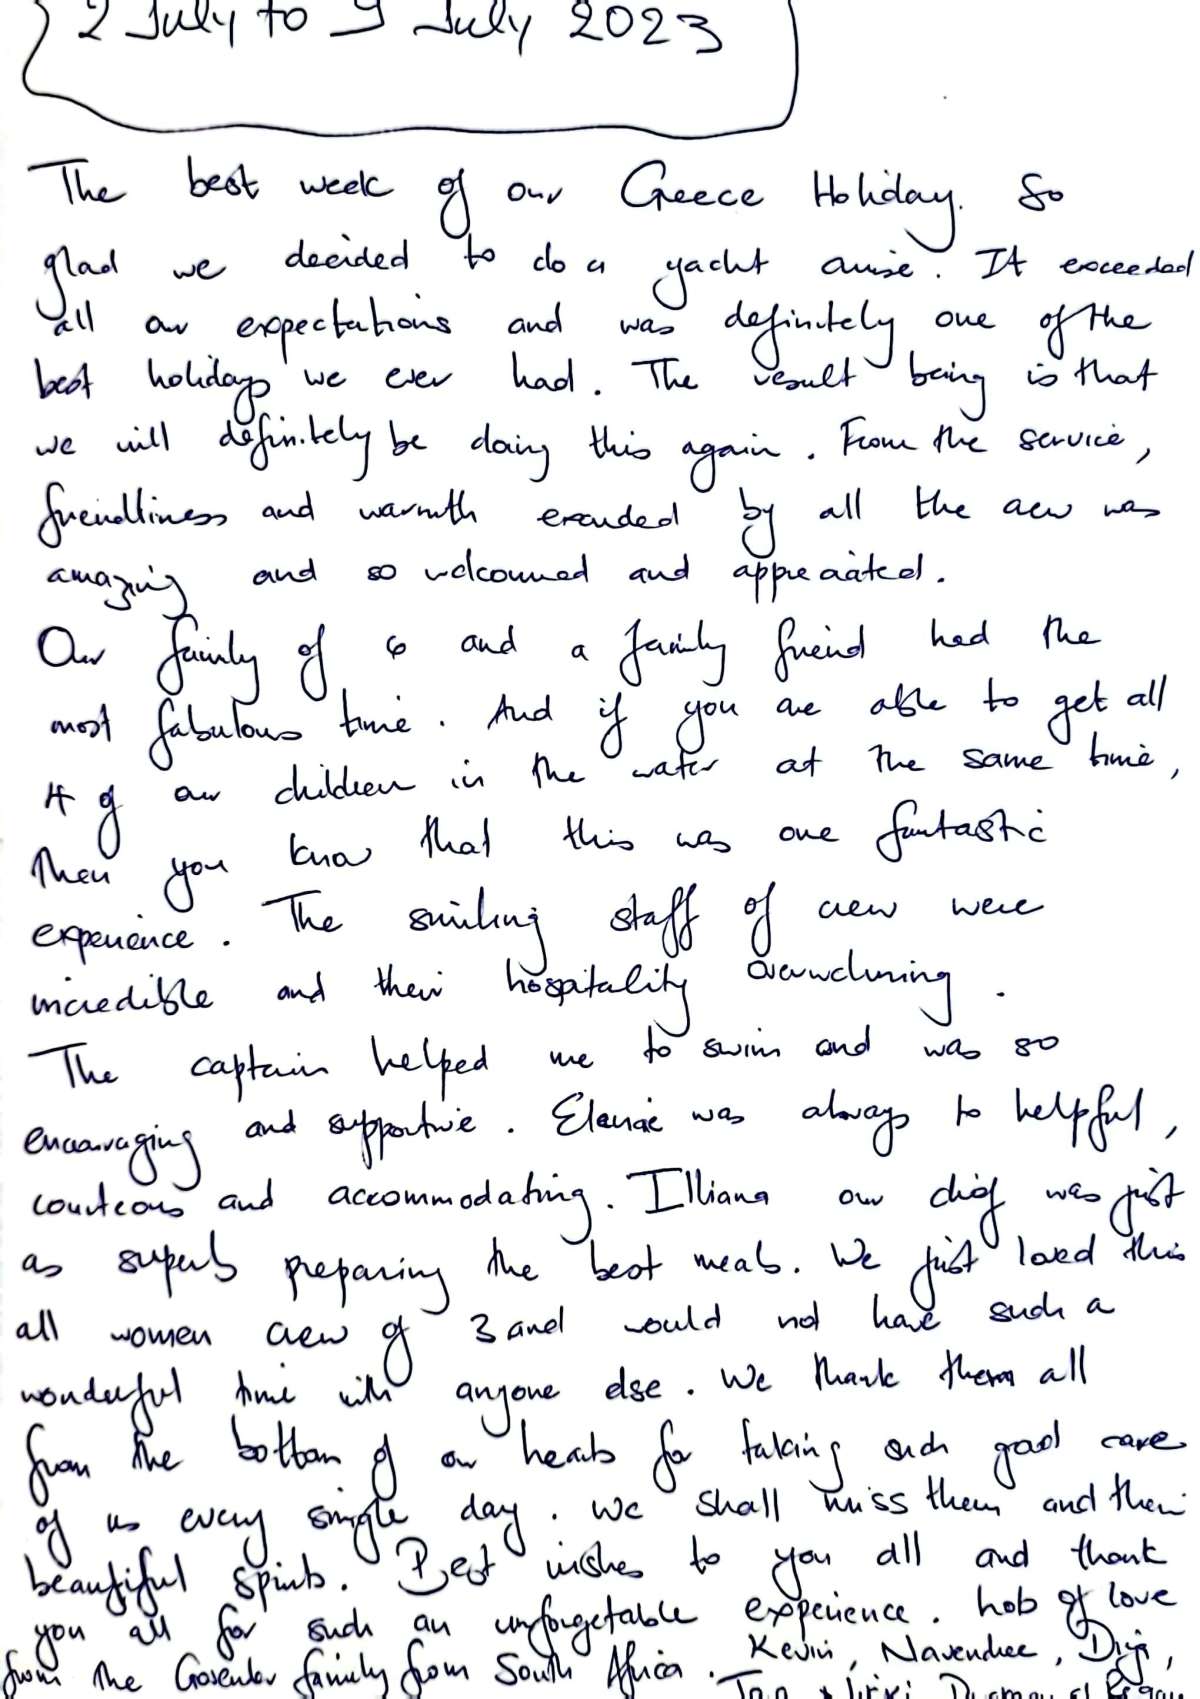 2 July to 9 July 2023
The best week of our Greece Holiday. So
glad we decided to do a yacht cruise. It exceeded
all our expectations and was definitely one of the
best holidays we ever had. The result being is that
we will definitely be doing this again. From the service,
friendliness and warmth exuded by all the crew was
amazing and so welcomed and appreciated.
Our family of 6 and a family friend had the
most fabulous time. And if you are able to get all
4 of our children in the water at the same time,
then you know that this was one fantastic
experience. The smiling staff of crew were
incredible and their hospitality overwhelming.
The captain helped me to swim and was so
encouraging and supportive. was always to helpful,
courteous and accommodating. Illiana our chief was just
as superb preparing the best meals. We just loved this
all women crew of 3 and would not have such a
wonderful time with anyone else. We thank them all
from the bottom of our hearts for taking such good care
of us every single day. We shall miss them and their
beautiful spirits. Best wishes to you all and thank
you all for such an unforgetable experience. of love
from the family from South Africa. Kevin, Navendree,